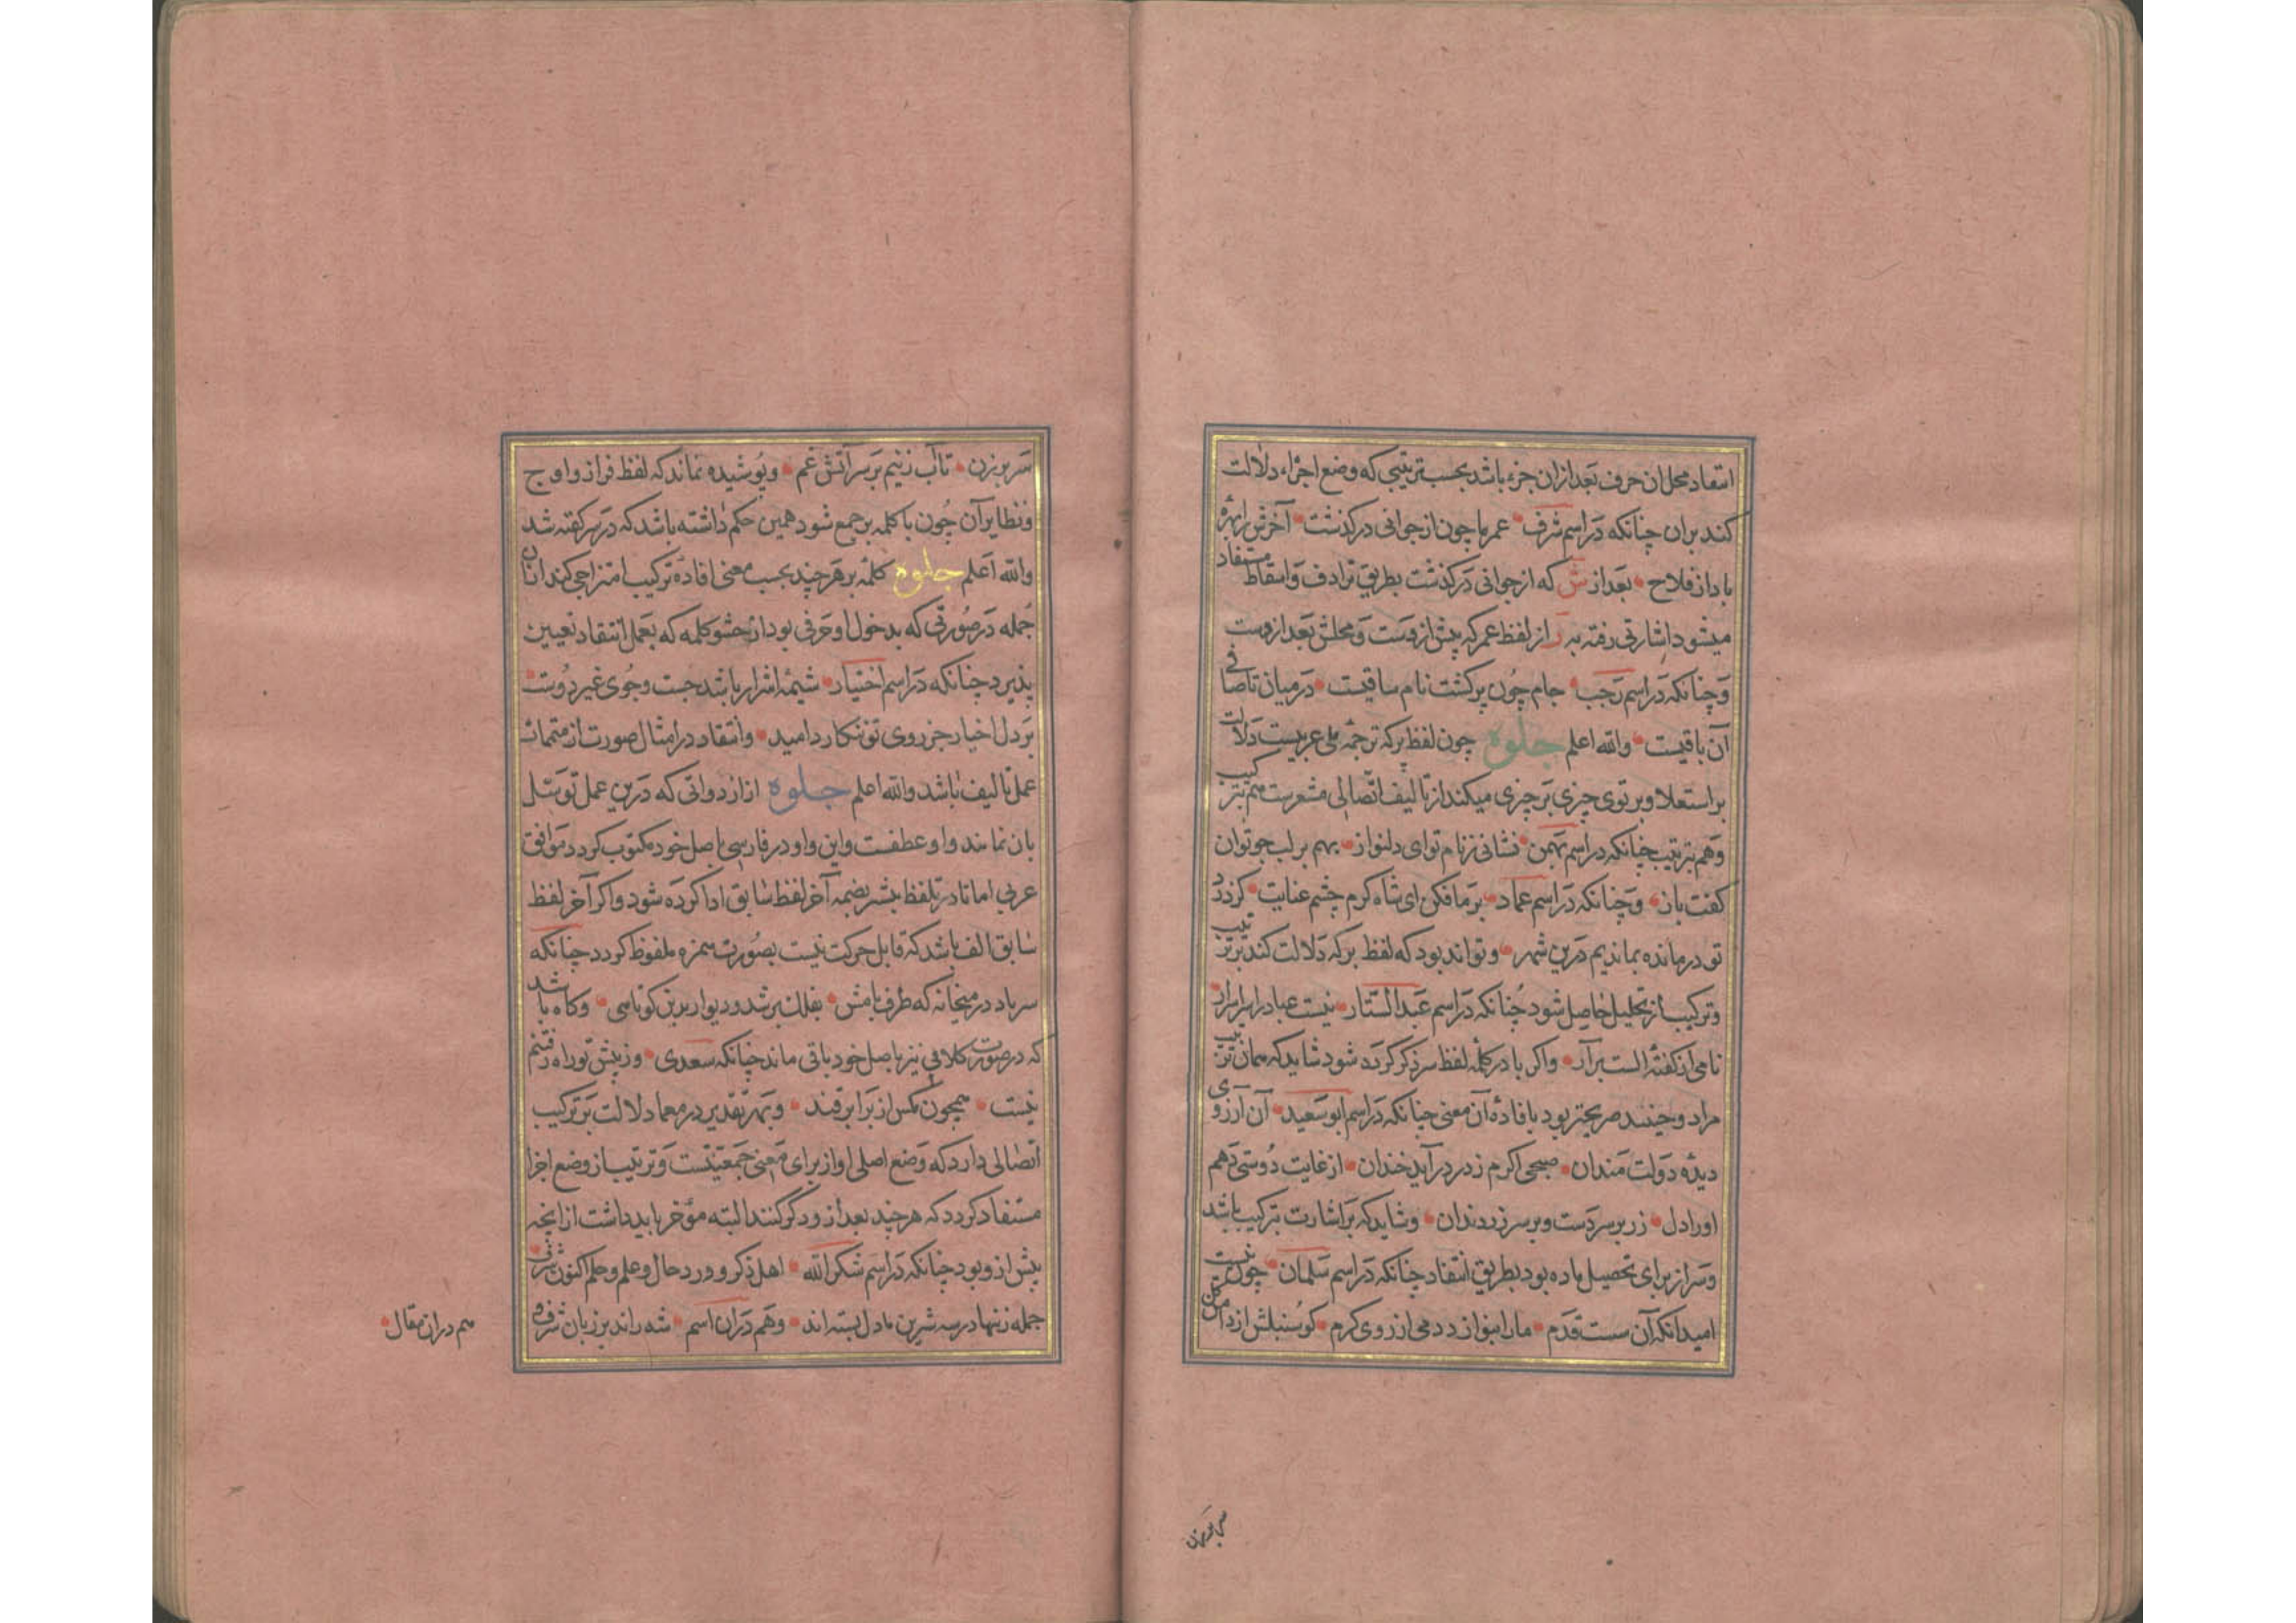 انتقاد محل ان حرف بعد ازان جزء باشد بحسب ترتیبی که وضع اجزاء دلالت
کند بران چنانکه در اسم شرف عمر ما چون از جوانی در کذشت آخرش را بهرهٔ
باد از فلاح بعد از ش که از جوانی در کذشت بطریق ترادف و اسقاط مستفاد
میشود اشارتی رفته به ر از لفظ عمر که پیش ازوست و محلش بعد ازوست
و چنانکه در اسم رجب جام چون پر کشت نام ساقیست در میان تا صافی
آن باقیست والله اعلم جلوه چون لفظ بر که ترجمهٔ علی عربیست دلالت
بر استعلا و بر توی چیزی بر چیزی میکند از تالیف اتصالی مشعرست هم بترکیب
و هم بترتیب چنانکه در اسم بهمن نشانی ز نام تو ای دلنواز بهم بر لب جو توان
کفت بان و چنانکه در اسم عماد بر ما فکن ای شاه کرم چشم عنایت کز درد
تو درمانده بماندیم درین شهر و تواند بود که لفظ بر که دلالت کند بر ترتیب
و ترکیب از تحلیل حاصل شود چنانکه در اسم عبد الستار نیست عباد را برابرار
نامی از کفتهٔ الست برآر و اکر با در کلمهٔ لفظ سر ذکر کرده شود شاید که همان ترتیب
مراد و حینئذ صریحتر بود بافادهٔ آن معنی چنانکه در اسم ابو سعید آن آرزوی
دیدهٔ دولت مندان صبحی اکرم ز در درآید خندان از غایت دوستی دهم
او را دل زر بر سر دست و بر سر زر دندان و شاید که بر اشارت بترکیب باشد
و سر از برای تحصیل ماده بود بطریق انتقاد چنانکه در اسم سلمان چون نیست
امید انکه آن سست قدم ما را بنوازد دمی از روی کرم کو سنبلش از دامن
سر بر زن تا آب زنیم بر سر آتش غم و پوشیده نماند که لفظ فراز و اوج
و نظایر آن چون با کلمه بر جمع شود همین حکم داشته باشد که در سر کفته شد
والله اعلم جلوه کلمهٔ بر هر چند بحسب معنی افادهٔ ترکیب امتزاجی کند از ان
جمله در صورتی که مدخول او حرفی بود از حشو کلمه که بعمل انتقاد تعیین
پذیرد چنانکه در اسم اختیار شیمهٔ اشرار باشد جست و جوی غیر دوست
بر دل اخیار جز روی تو ننکارد امید و انتقاد در امثال صورت از متممات
عمل تالیف باشد والله اعلم جلوه از ازدواتی که درین عمل توسل
بان نمایند واو عطفست و این واو در فارسی باصل خود مکتوب کردد موافق
عربی اما نادر تلفظ بیشتر بضمهٔ آخر لفظ سابق ادا کرده شود و اکر آخر لفظ
سابق الف باشد که قابل حرکت نیست بصورت همزه ملفوظ کردد چنانکه
سر باد در میخانه که طرف بامش بفلک بر شد و دیوار بدین کوتاهی و کاه باشد
که در صورت کلامی نیز باصل خود باقی ماند چنانکه سعدی وز پیش تو راه رفتنم
نیست همچون مکس از برابر قند و بهر تقدیر در معما دلالت بر ترکیب
اتصالی دارد که وضع اصلی او از برای معنی جمعیتست و ترتیب از وضع اجزا
مستفاد کردد که هر چه بعد از و ذکر کنند البته مؤخر باید داشت از انچه
پیش از و بود چنانکه در اسم شکر الله اهل ذکر و ورد حال و علم و حلم اکنون شرف
جمله ز تنها در سه شرین ما دل بسته اند و هم در ان اسم شه راند بر زبان شرف
هم دران مقال